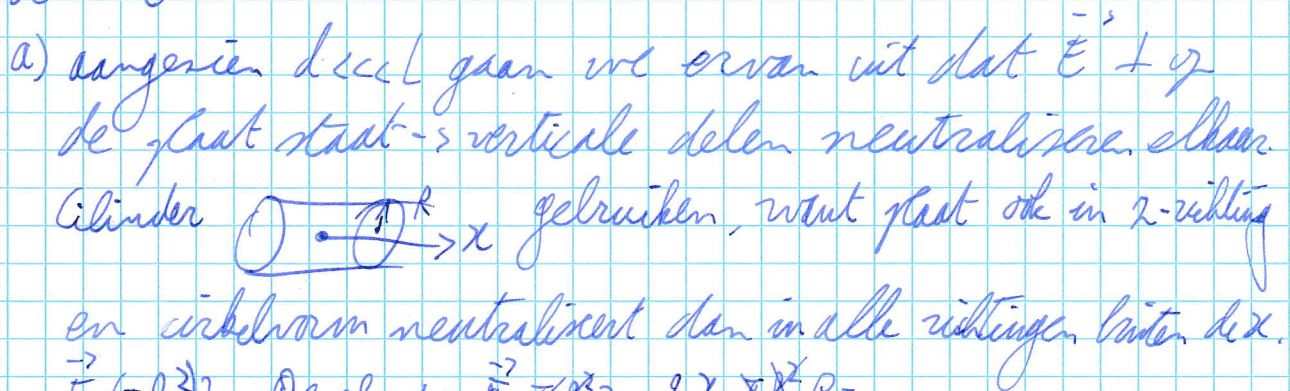 a) aangezien d<<<L gaan we ervan uit dat E ⊥ op
de plaat staat -> verticale delen neutraliseren elkaar.
Cilinder R x gebruiken, want plaat ook in z-richting
en cirkelvorm neutraliseert dan in alle richtingen buiten de x.